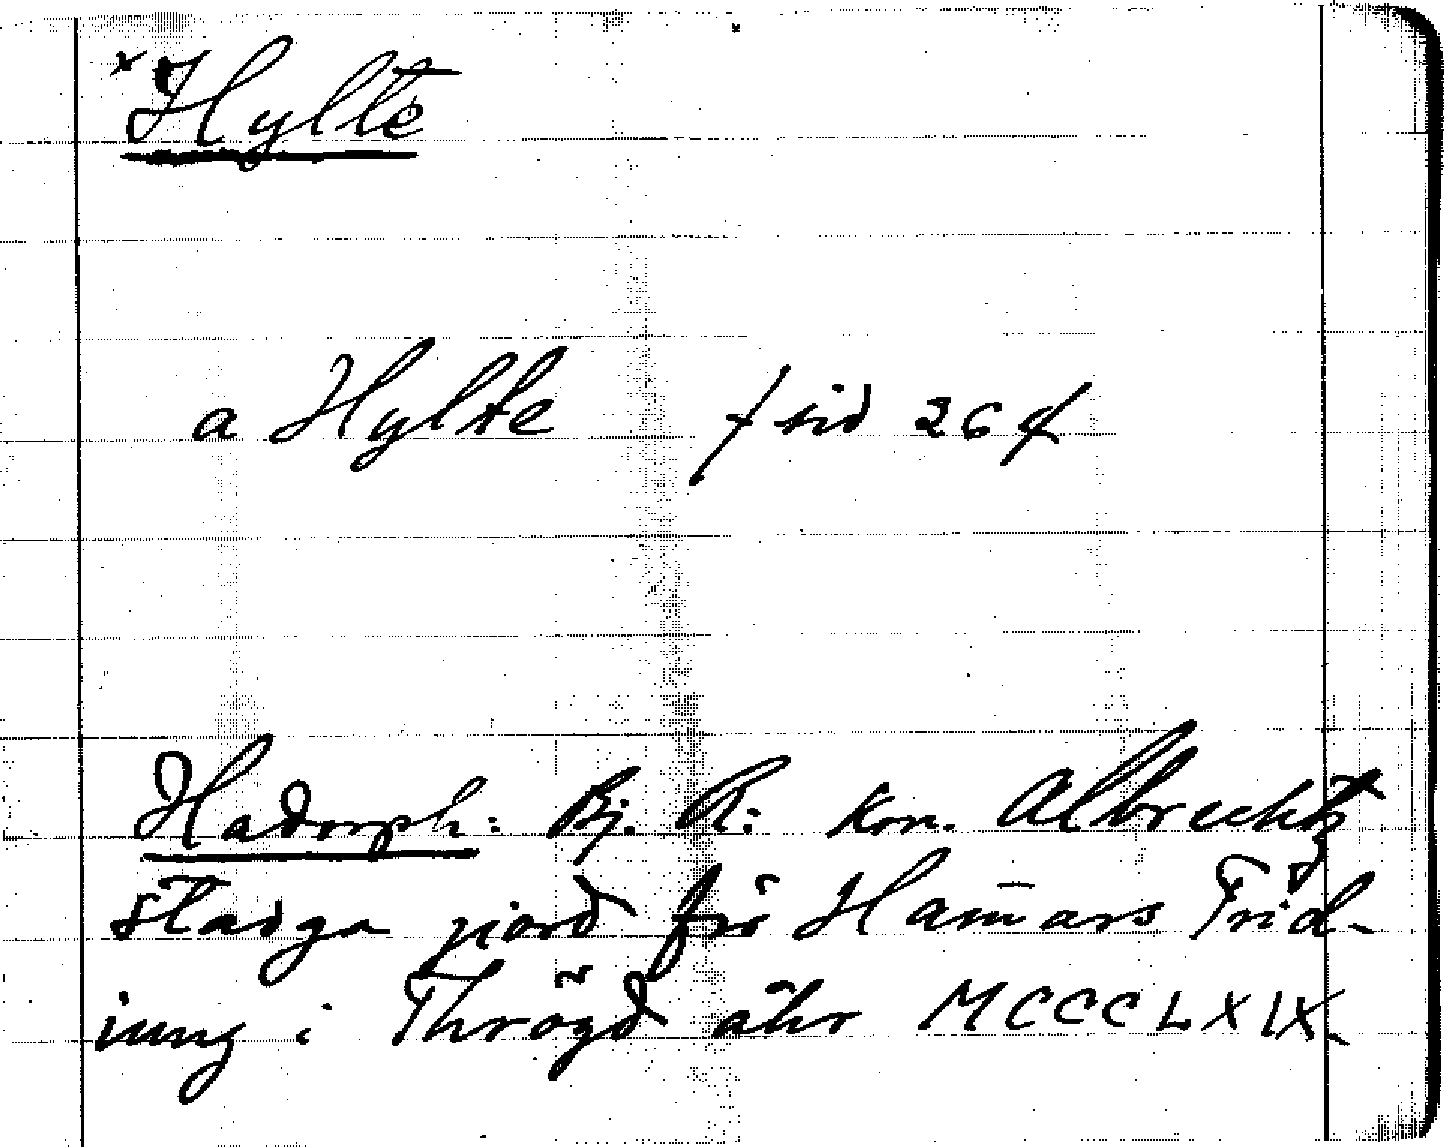 x Hylte
a Hylte f sid 26 f
Hadorph: Bj. R: kon. Albrechtz
stadga giord för Ham̄ars Trid-
iung i Thrögd åhr MCCCLXIX